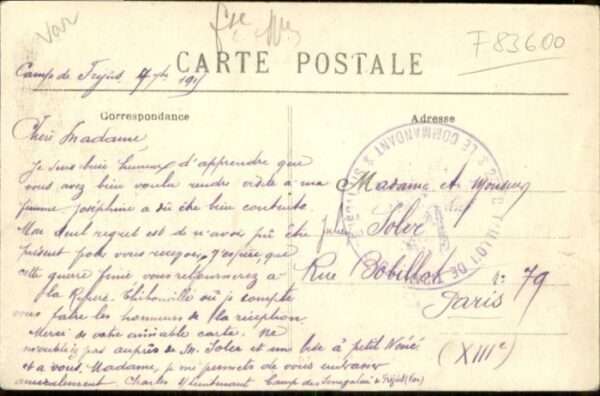 Var
F83600
CARTE POSTALE
Camp de Fréjus
Correspondance
Adresse
Chère Madame
Je suis bien heureux d'apprendre que
vous avez bien voulu rendre visite à ma
femme Joséphine a dû être bien contente.
Mon seul regret est de n'avoir pû être
présent pour vous recevoir, j'espère que
cette guerre finie vous retournerez à
la Rivière Thibouville où je compte
vous faire les honneurs de la réception.
Merci de votre aimable carte. Ne
m'oubliez pas auprès de M. Soler et un bise à petit Néné
et a vous, Madame, je me permets de vous embrasser
amicalement Charles S/lieutenant Camp des Sénégalais à Fréjus (Var)
Madame et Monsieur
Jules Soler
Rue Bobillot No 79
Paris
(XIIIe)
LE COMMANDANT